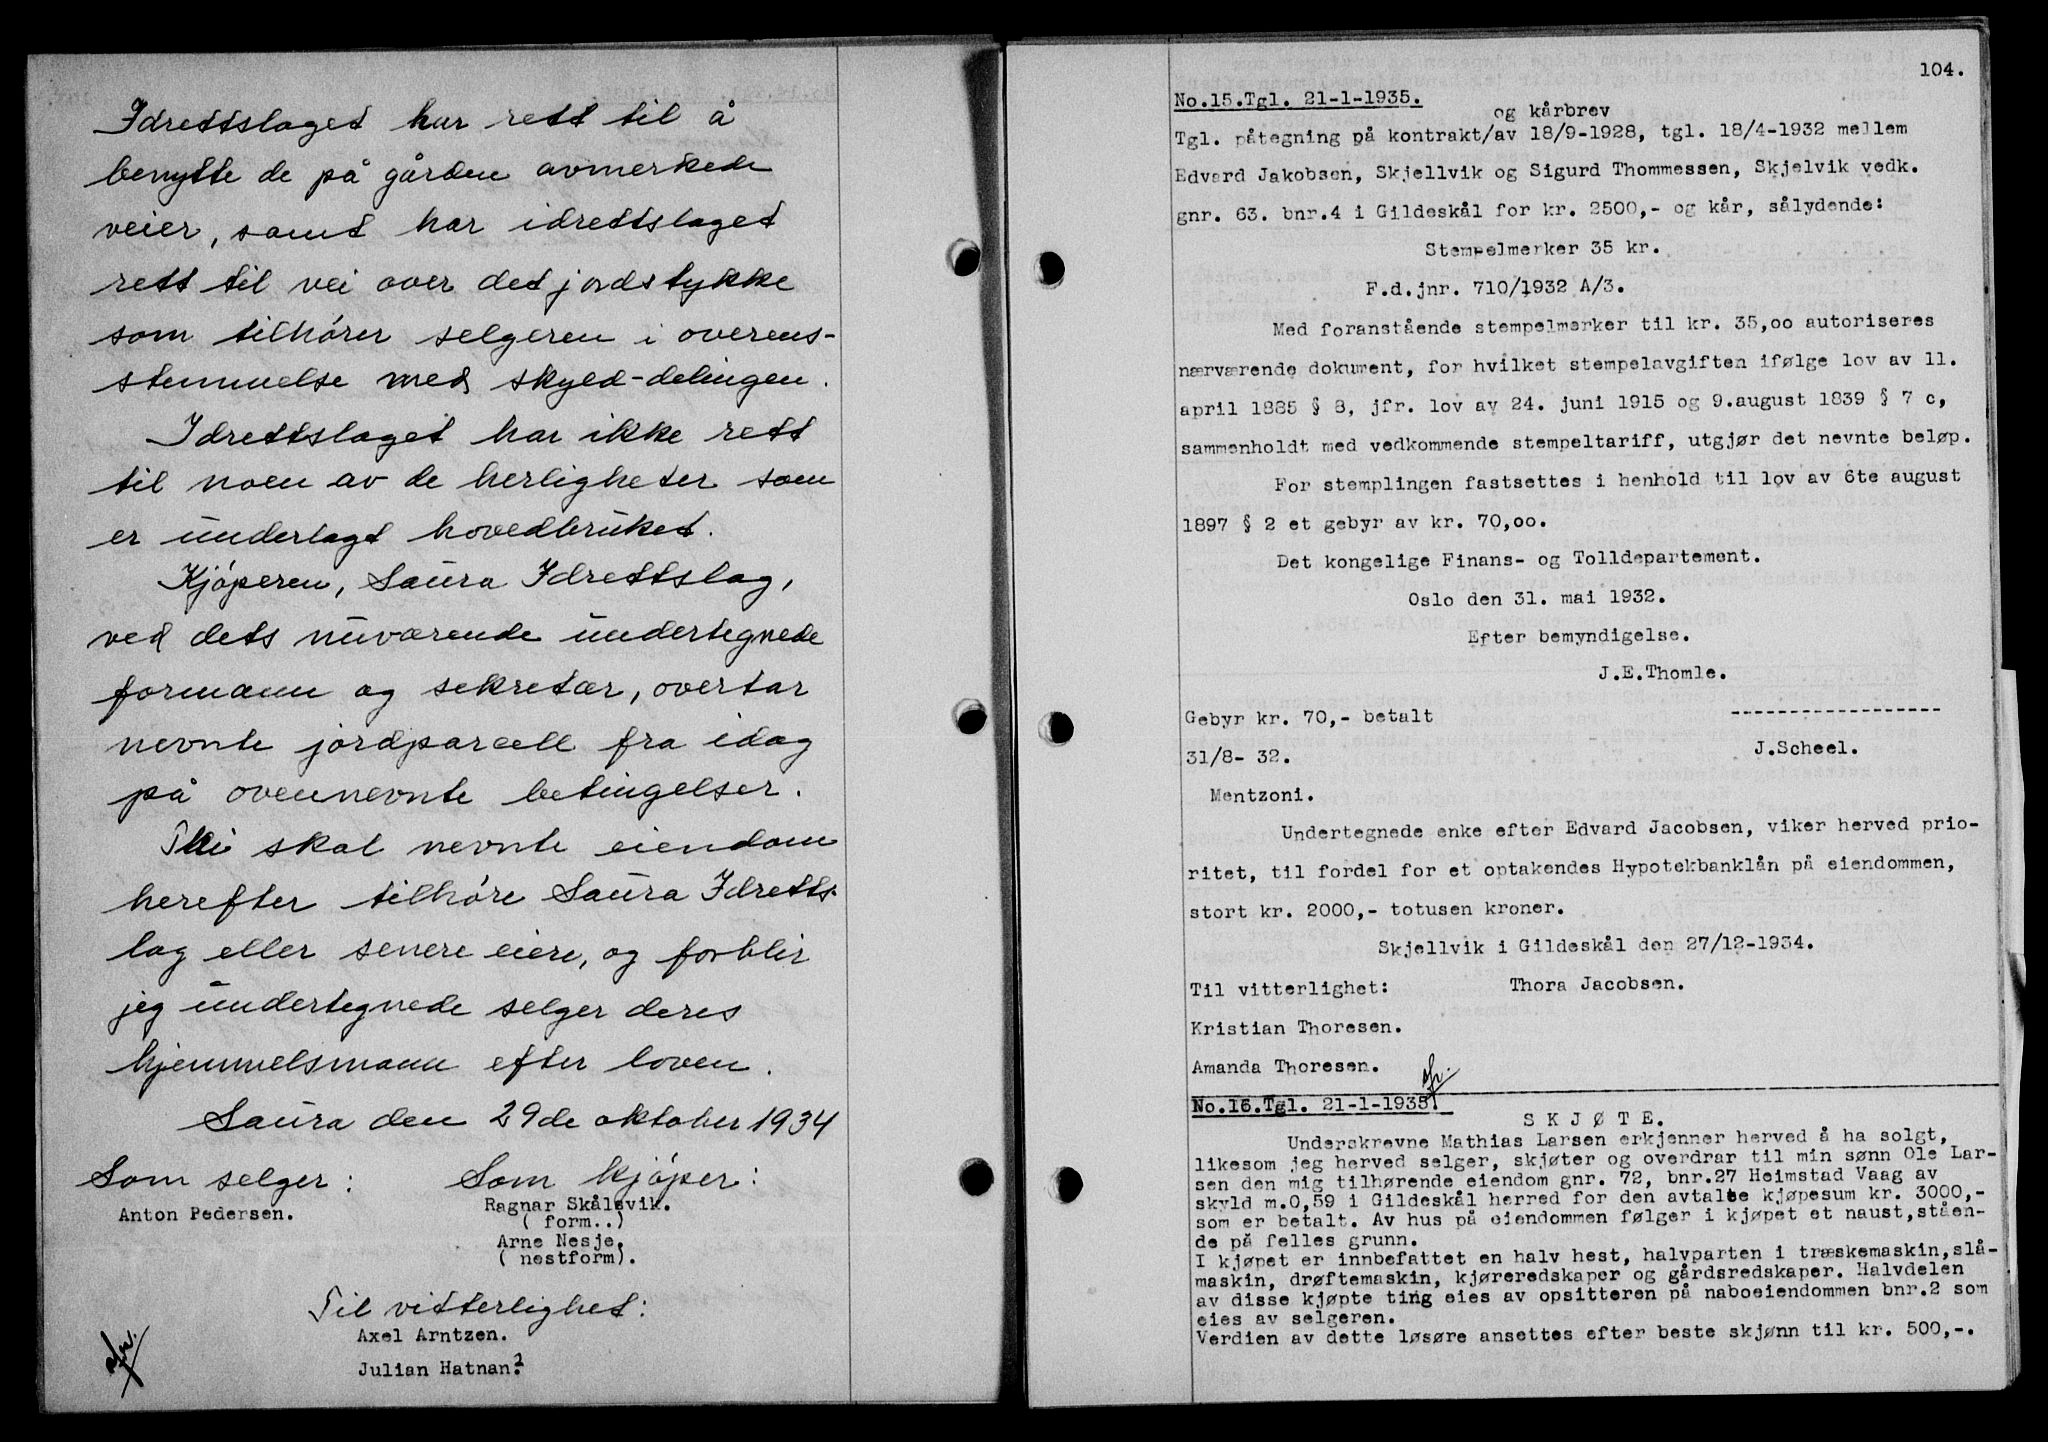 Idrettslaget har rett til å
benytte de på gården avmerkede
veier, samt har idrettslaget
rett til vei over det jordstykke
som tilhører selgeren i overens-
stemmelse med skyld-delingen.
Idrettslaget har ikke rett
til noen av de herligheter som
er underlagt hovedbruket.
Kjøperen, Saura Idrettslag,
ved dets nuværende undertegnede
formann og sekretær, overtar
nevnte jordparcell fra idag
på ovennevnte betingelser.
Thi skal nevnte eiendom
herefter tilhøre Saura Idretts-
lag eller senere eiere, og forblir
jeg undertegnede selger deres
hjemmelsmann efter loven.
Saura den 29de oktober 1934
Som selger: Som kjøper:
Anton Pedersen. Ragnar Skålsvik.
( form..)
Arne Nesje.
( nestform).
Til vitterlighet:
Axel Arntzen.
Julian Hatnan.?
104.
No.15.Tgl. 21-1-1935.
og kårbrev
Tgl. påtegning på kontrakt/av 18/9-1928, tgl. 18/4-1932 mellem
Edvard Jakobsen, Skjellvik og Sigurd Thommessen, Skjelvik vedk.
gnr. 63. bnr.4 i Gildeskål for kr. 2500,- og kår, sålydende:
Stempelmerker 35 kr.
F.d.jnr. 710/1932 A/3.
Med foranstående stempelmerker til kr. 35,oo autoriseres
nærværende dokument, for hvilket stempelavgiften ifølge lov av 11.
april 1885 § 8, jfr. lov av 24. juni 1915 og 9.august 1839 § 7 c,
sammenholdt med vedkommende stempeltariff, utgjør det nevnte beløp.
For stemplingen fastsettes i henhold til lov av 6te august
1897 § 2 et gebyr av kr. 70,oo.
Det kongelige Finans- og Tolldepartement.
Oslo den 31. mai 1932.
Efter bemyndigelse.
J.E.Thomle.
Gebyr kr. 70,- betalt ------------------
31/8- 32. J.Scheel.
Mentzoni.
Undertegnede enke efter Edvard Jacobsen, viker herved prio-
ritet, til fordel for et optakendes Hypotekbanklån på eiendommen,
stort kr. 2000,- totusen kroner.
Skjellvik i Gildeskål den 27/12-1934.
Til vitterlighet: Thora Jacobsen.
Kristian Thoresen.
Amanda Thoresen.
No.16.Tgl. 21-1-1935.
SKJØTE.
Underskrevne Mathias Larsen erkjenner herved å ha solgt,
likesom jeg herved selger, skjøter og overdrar til min sønn Ole Lar-
sen den mig tilhørende eiendom gnr. 72, bnr.27 Heimstad Vaag av
skyld m.0,59 i Gildeskål herred for den avtalte kjøpesum kr. 3000,-
som er betalt. Av hus på eiendommen følger i kjøpet et naust,ståen-
de på felles grunn.
I kjøpet er innbefattet en halv hest, halvparten i træskemaskin,slå-
maskin, drøftemaskin, kjøreredskaper og gårdsredskaper. Halvdelen
av disse kjøpte ting eies av opsitteren på naboeiendommen bnr.2 som
eies av selgeren.
Verdien av dette løsøre ansettes efter beste skjønn til kr. 500,-.